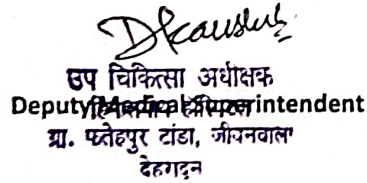 DKaushik
उप चिकित्सा अधीक्षक
Deputy Medical Superintendent
हिमालयीय हॉस्पिटल
ग्रा. फतेहपुर टांडा, जीवनवाला
देहरादून